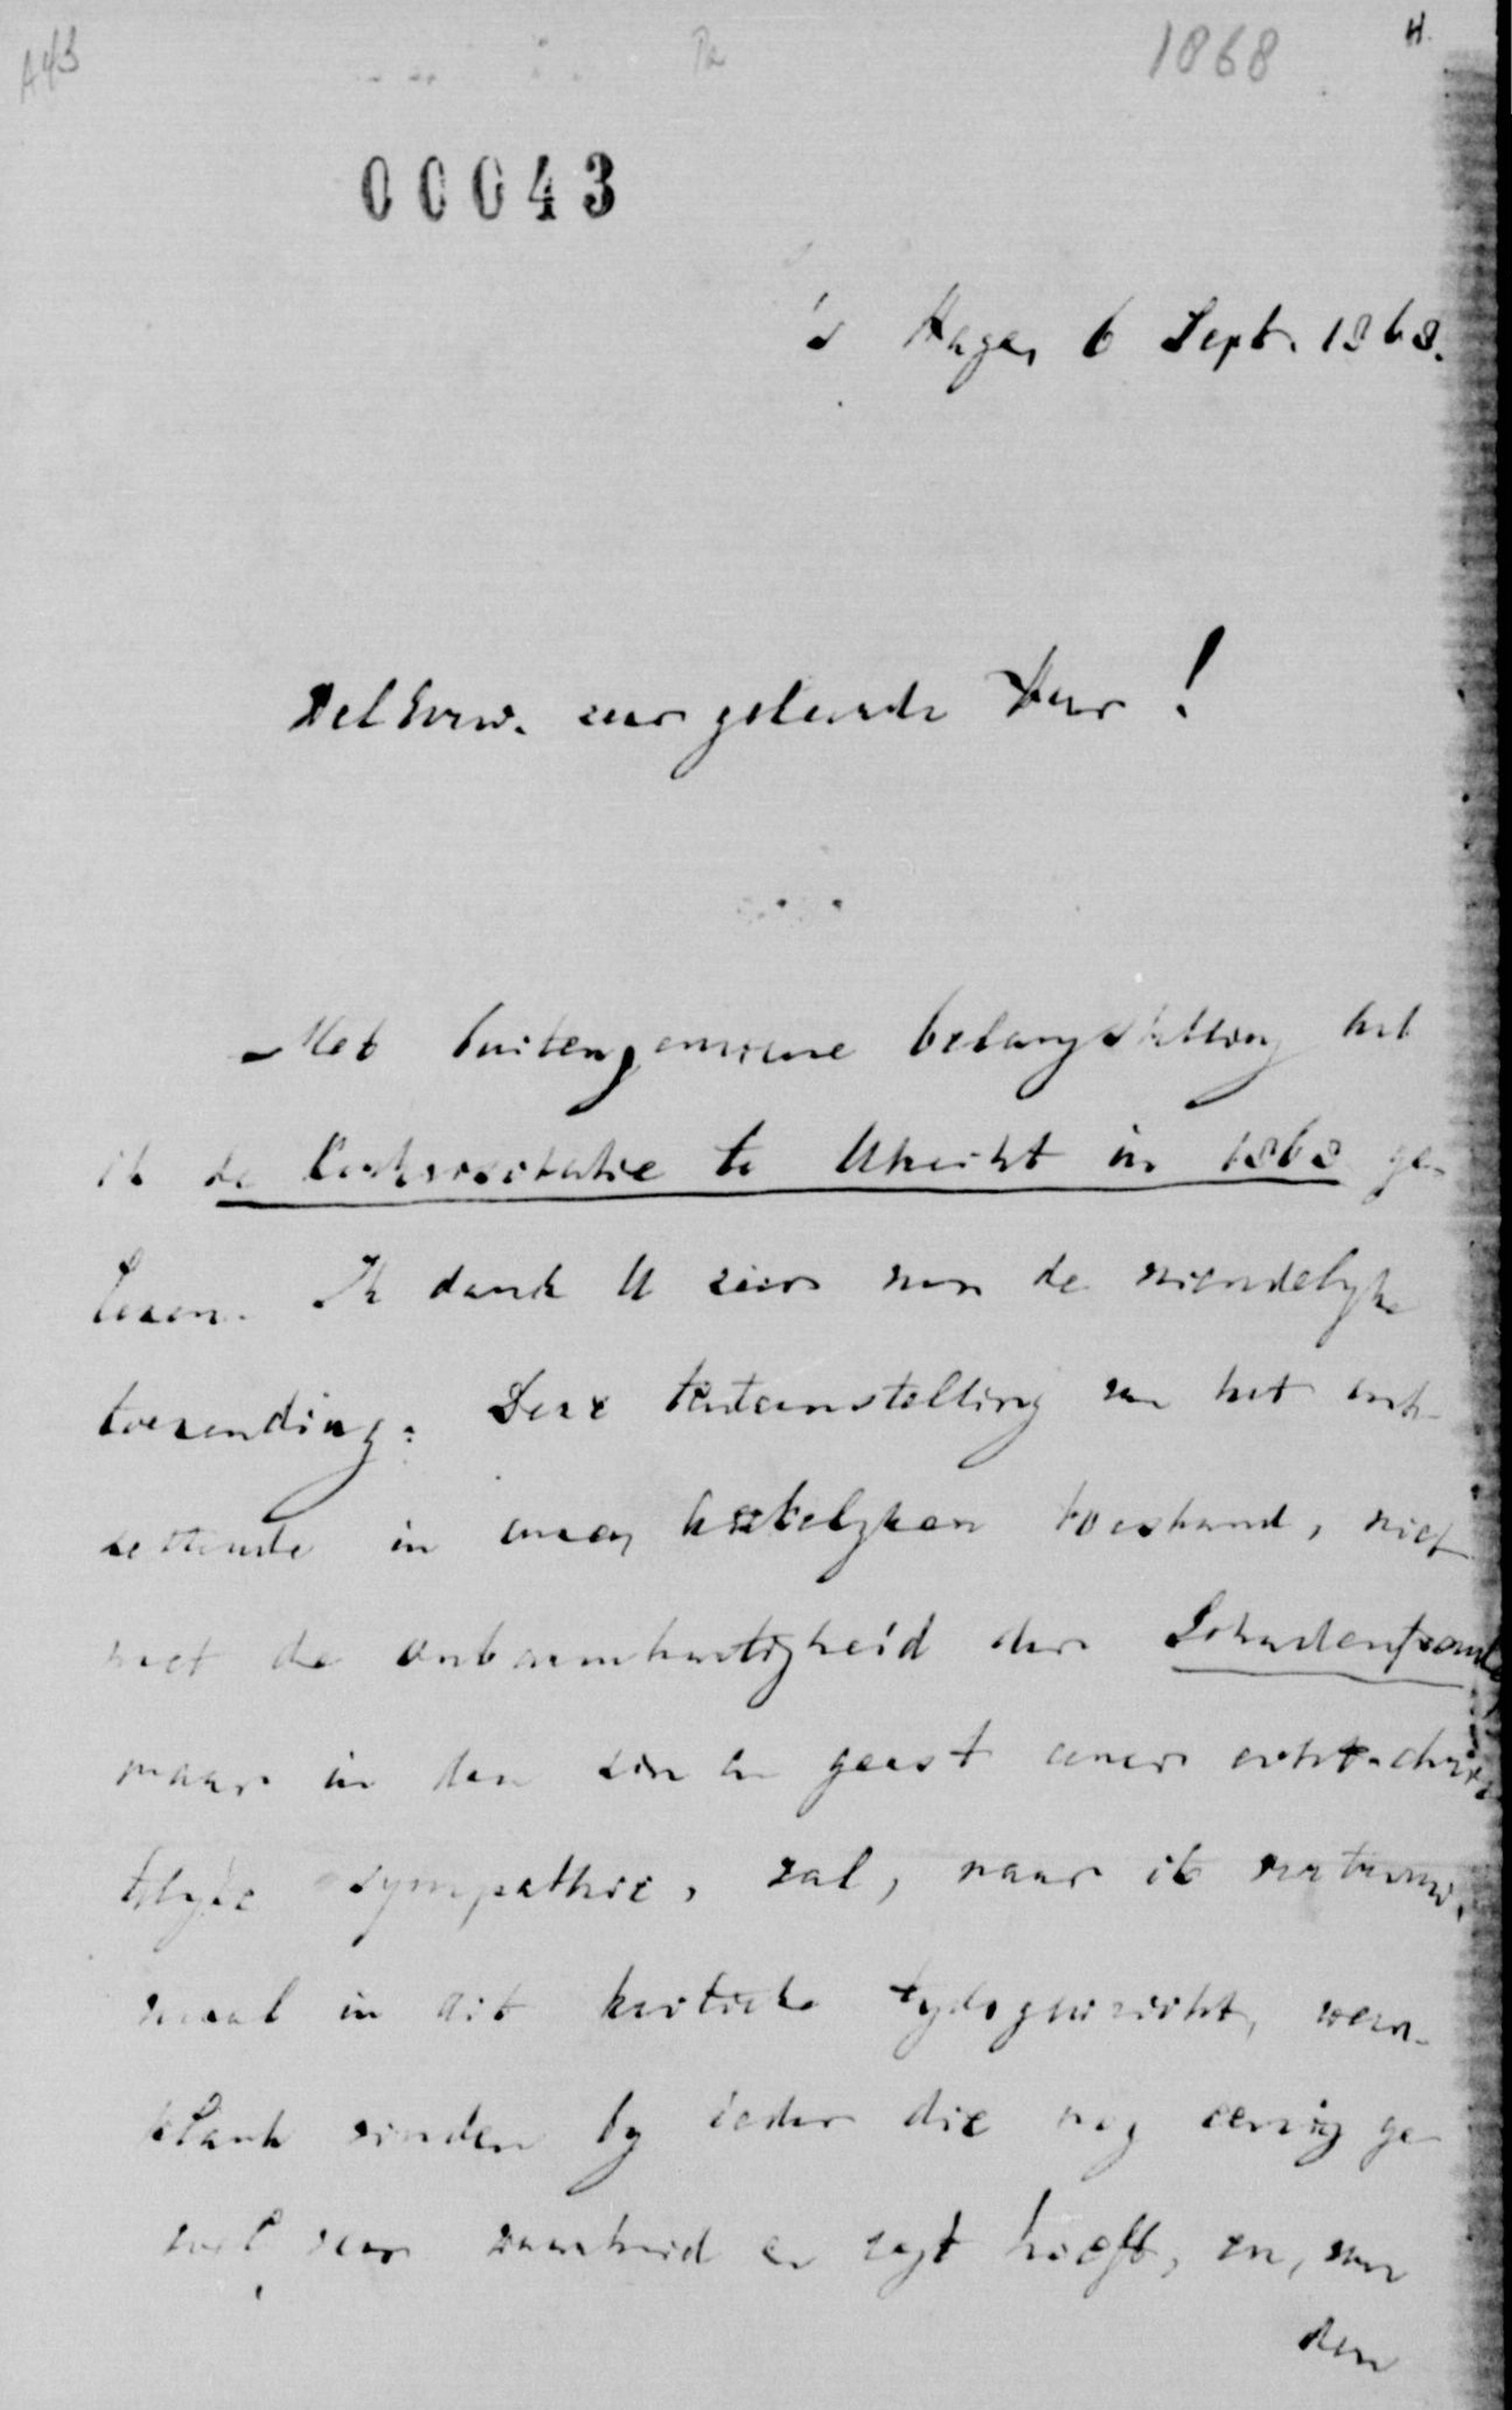 A43
1868
H.
00043
's Hage, 6 Sept. 1868.
WelEerw. zeer geleerde Heer!
Met buitengemeene belangstelling heb
ik de Kerkvisitatie te Utrecht in 1868 ge-
lezen. Ik dank U zeer voor de vriendelyke
toezending. Deze tentoonstelling van het ont-
zettende in onzen kerkelyken toestand, niet
met de onbarmhartigheid der Schadenfreude
maar in den zin en geest eener echt-chris-
telyke sympathie, zal, naar ik vertrouw,
vooral in dit kritieke tydsgewricht, weer-
klank vinden by ieder die nog eenig ge-
voel voor waarheid en regt heeft, en, van
den